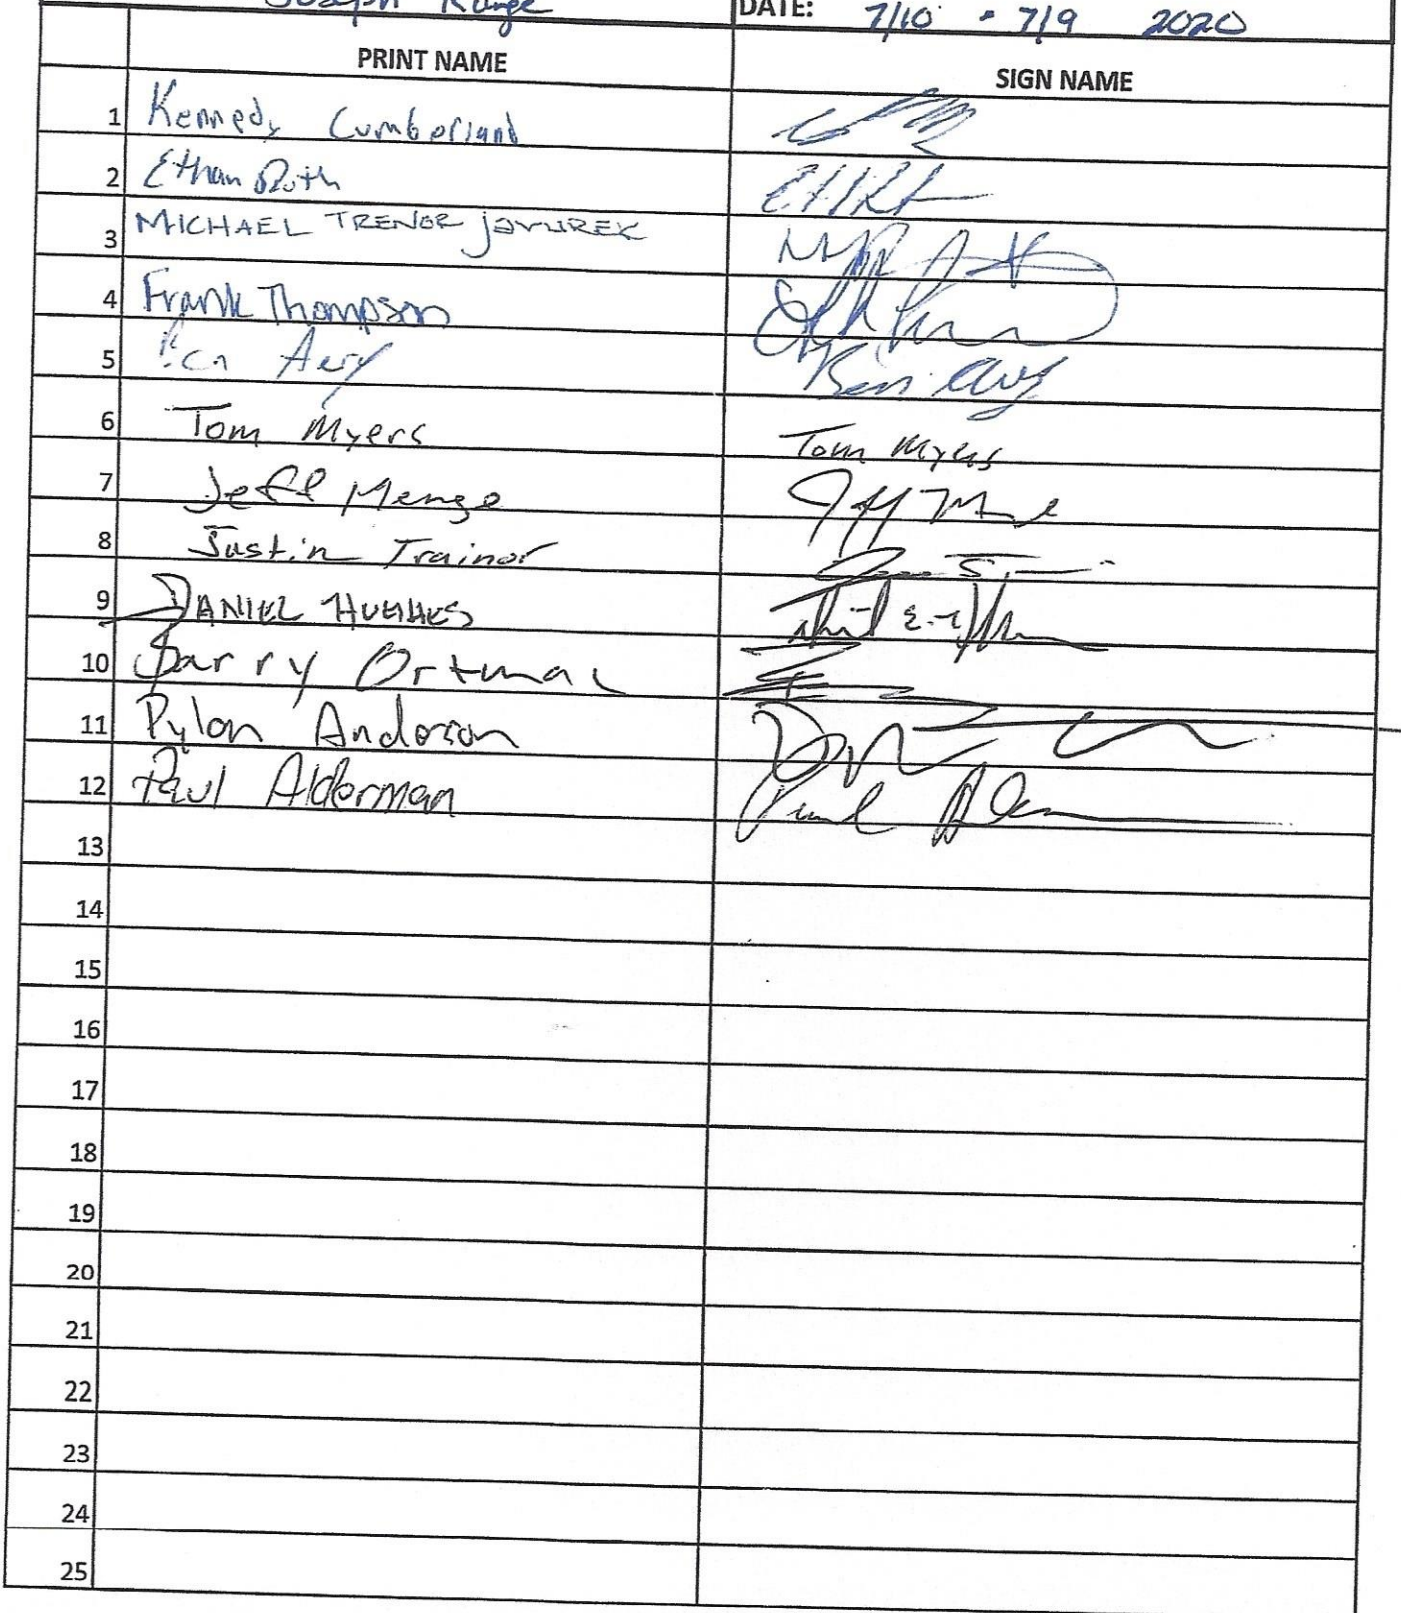 Joseph Runge DATE: 7/10 - 7/9 2020
PRINT NAME SIGN NAME
1 Kennedy Cumberland
2 Ethan Ruth
3 MICHAEL TRENOR JAVUREK
4 Frank Thompson
5 Ben Avry Ben Avry
6 Tom Myers Tom Myers
7 Jeff Menge
8 Justin Trainor
9 DANIEL HUGHES
10 Barry Ortman
11 Dylan Anderson
12 Paul Alderman Paul
13
14
15
16
17
18
19
20
21
22
23
24
25